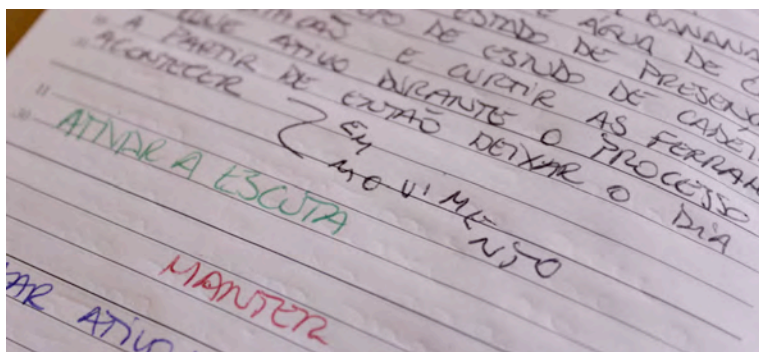 BANANA
E ÁGUA DE
ESTADO DE PRESENÇ
DE ESTUDO DE CADEI
E CURTIR AS FERRAM
QUE ATIVO DURANTE O PROCESSO
A PARTIR DE ENTÃO DEIXAR O DIA
ACONTECER
EM
MOVIMENTO
ATIVAR A ESCUTA
MANTER
AR ATIVO